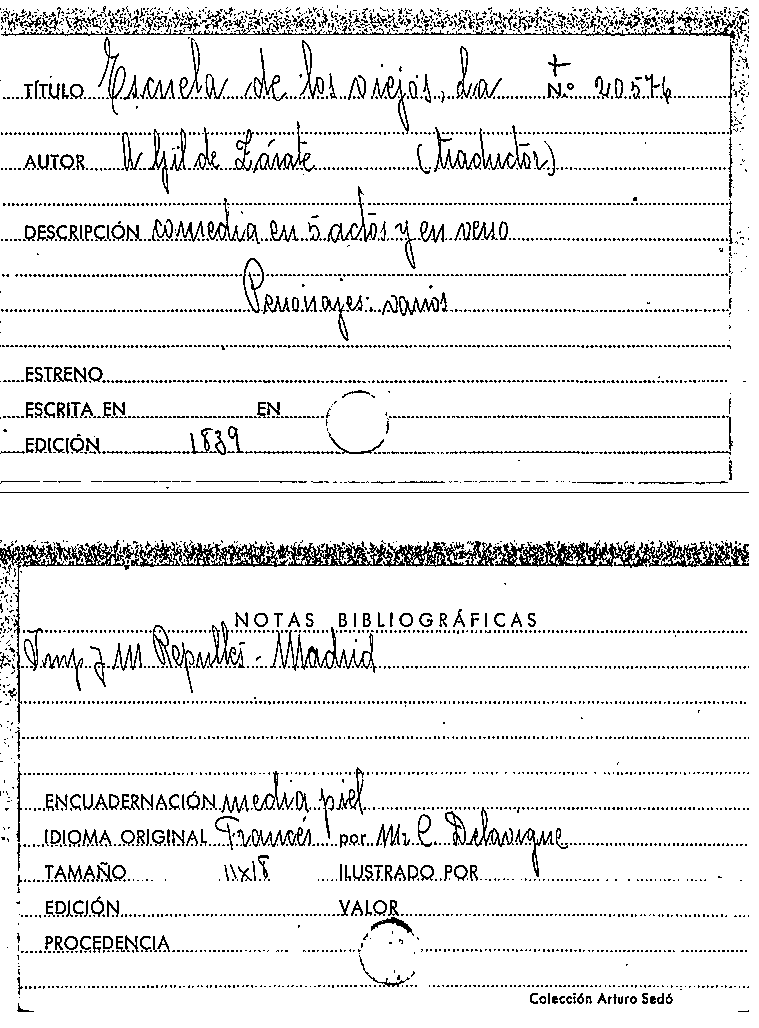 TÍTULO Escuela de los viejos, La + N.º 20576
AUTOR A Gil de Zárate (traductor)
DESCRIPCIÓN comedia en 5 actos y en verso
Personajes: varios
ESTRENO
ESCRITA EN EN
EDICIÓN 1839
NOTAS BIBLIOGRÁFICAS
Imp. J M Repullés - Madrid
ENCUADERNACIÓN media piel
IDIOMA ORIGINAL Francés por Mr C. Delavigne
TAMAÑO 11x18 ILUSTRADO POR
EDICIÓN VALOR
PROCEDENCIA
Colección Arturo Sedó